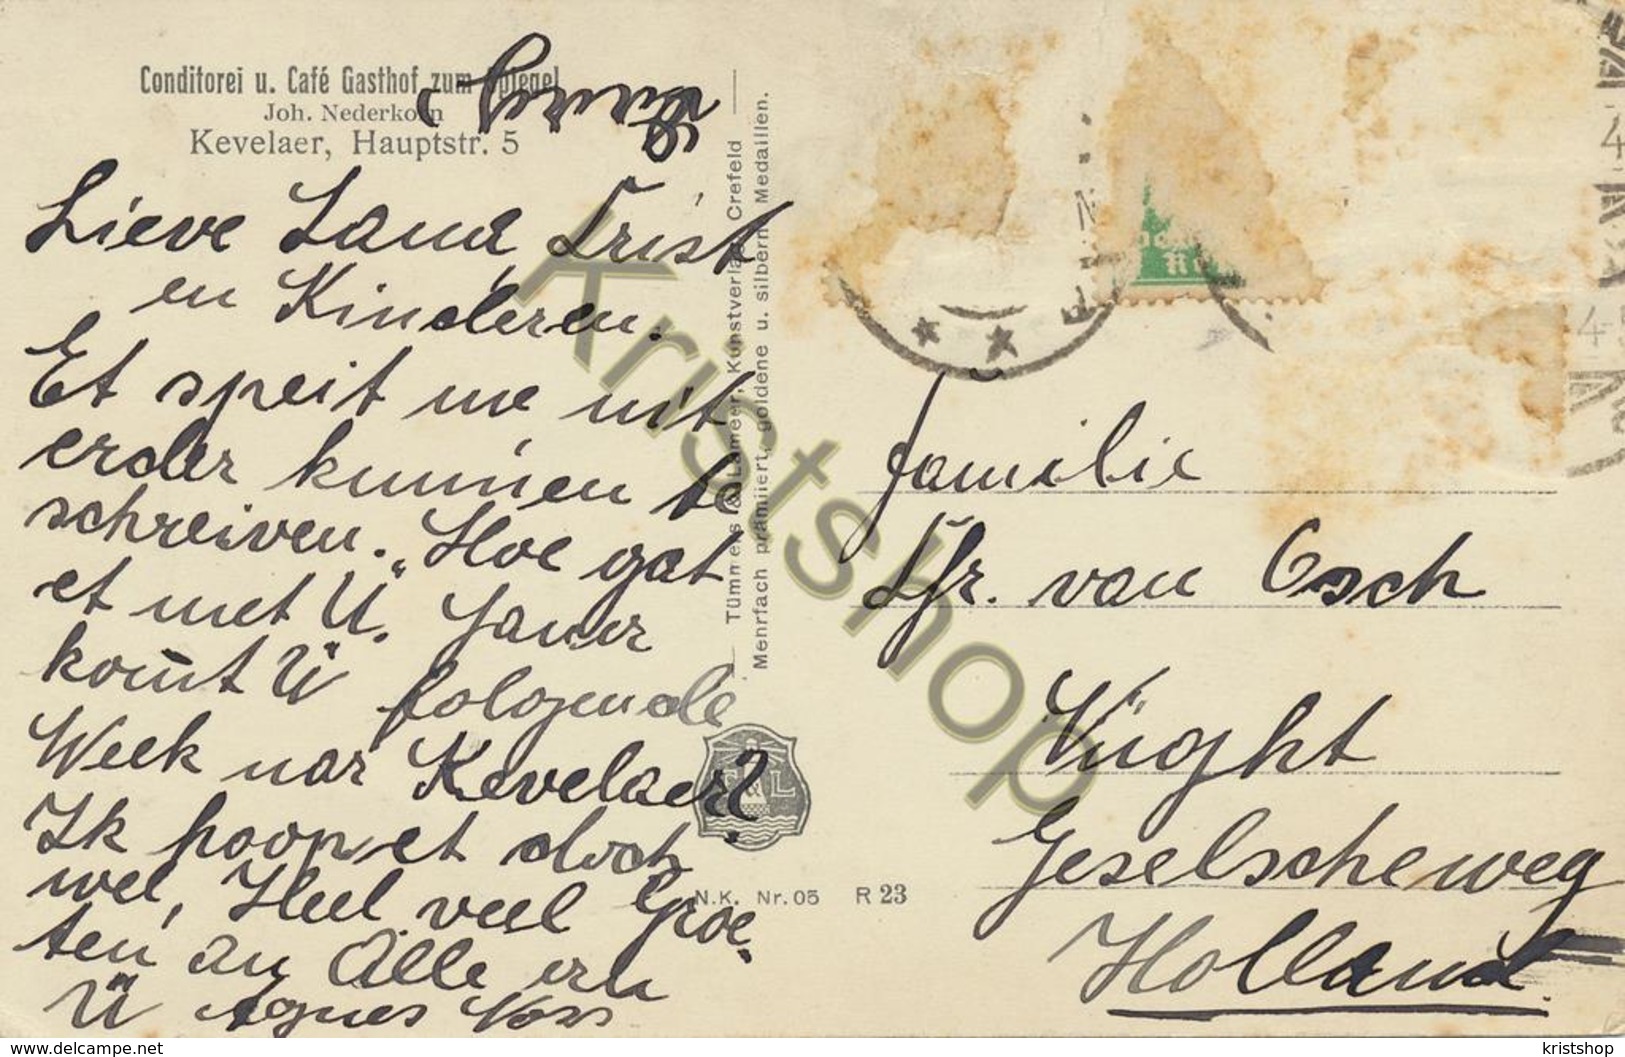 Conditorei u. Café Gasthof zum Spiegel
Joh. Nederkorn
Kevelaer, Hauptstr. 5
Lieve Land
en Kinderen.
Et speit me nit
erder kunnen te
schreiven. Hoe gat
et met Ü.
komt Ü folgende
Week nar Kevelaer?
Ik hoop et doch
wel, Heel veel Groe-
ten an Alle en
Ü Agnes Voss
Tümmers & Lameer, Kunstverlag, Crefeld
Mehrfach prämiiert, goldene u. silberne Medaillen.
T & L
N.K. Nr. 05 R 23
Familie
Chr. van Osch
Vught
Geselscheweg
Holland.
Kristshop
https://www.delcampe.net
kristshop